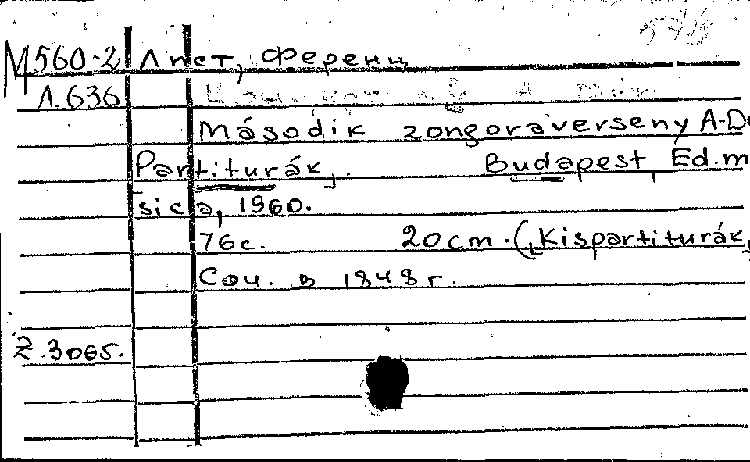 М560-2 Лист, Ференц
Л.636
Második zongoraverseny A-D
Partiturák. Budapest, Ed.m
sica, 1960.
76с. 20cm. („Kispartiturák,
Соч. в 1848 г.
Z.3065.